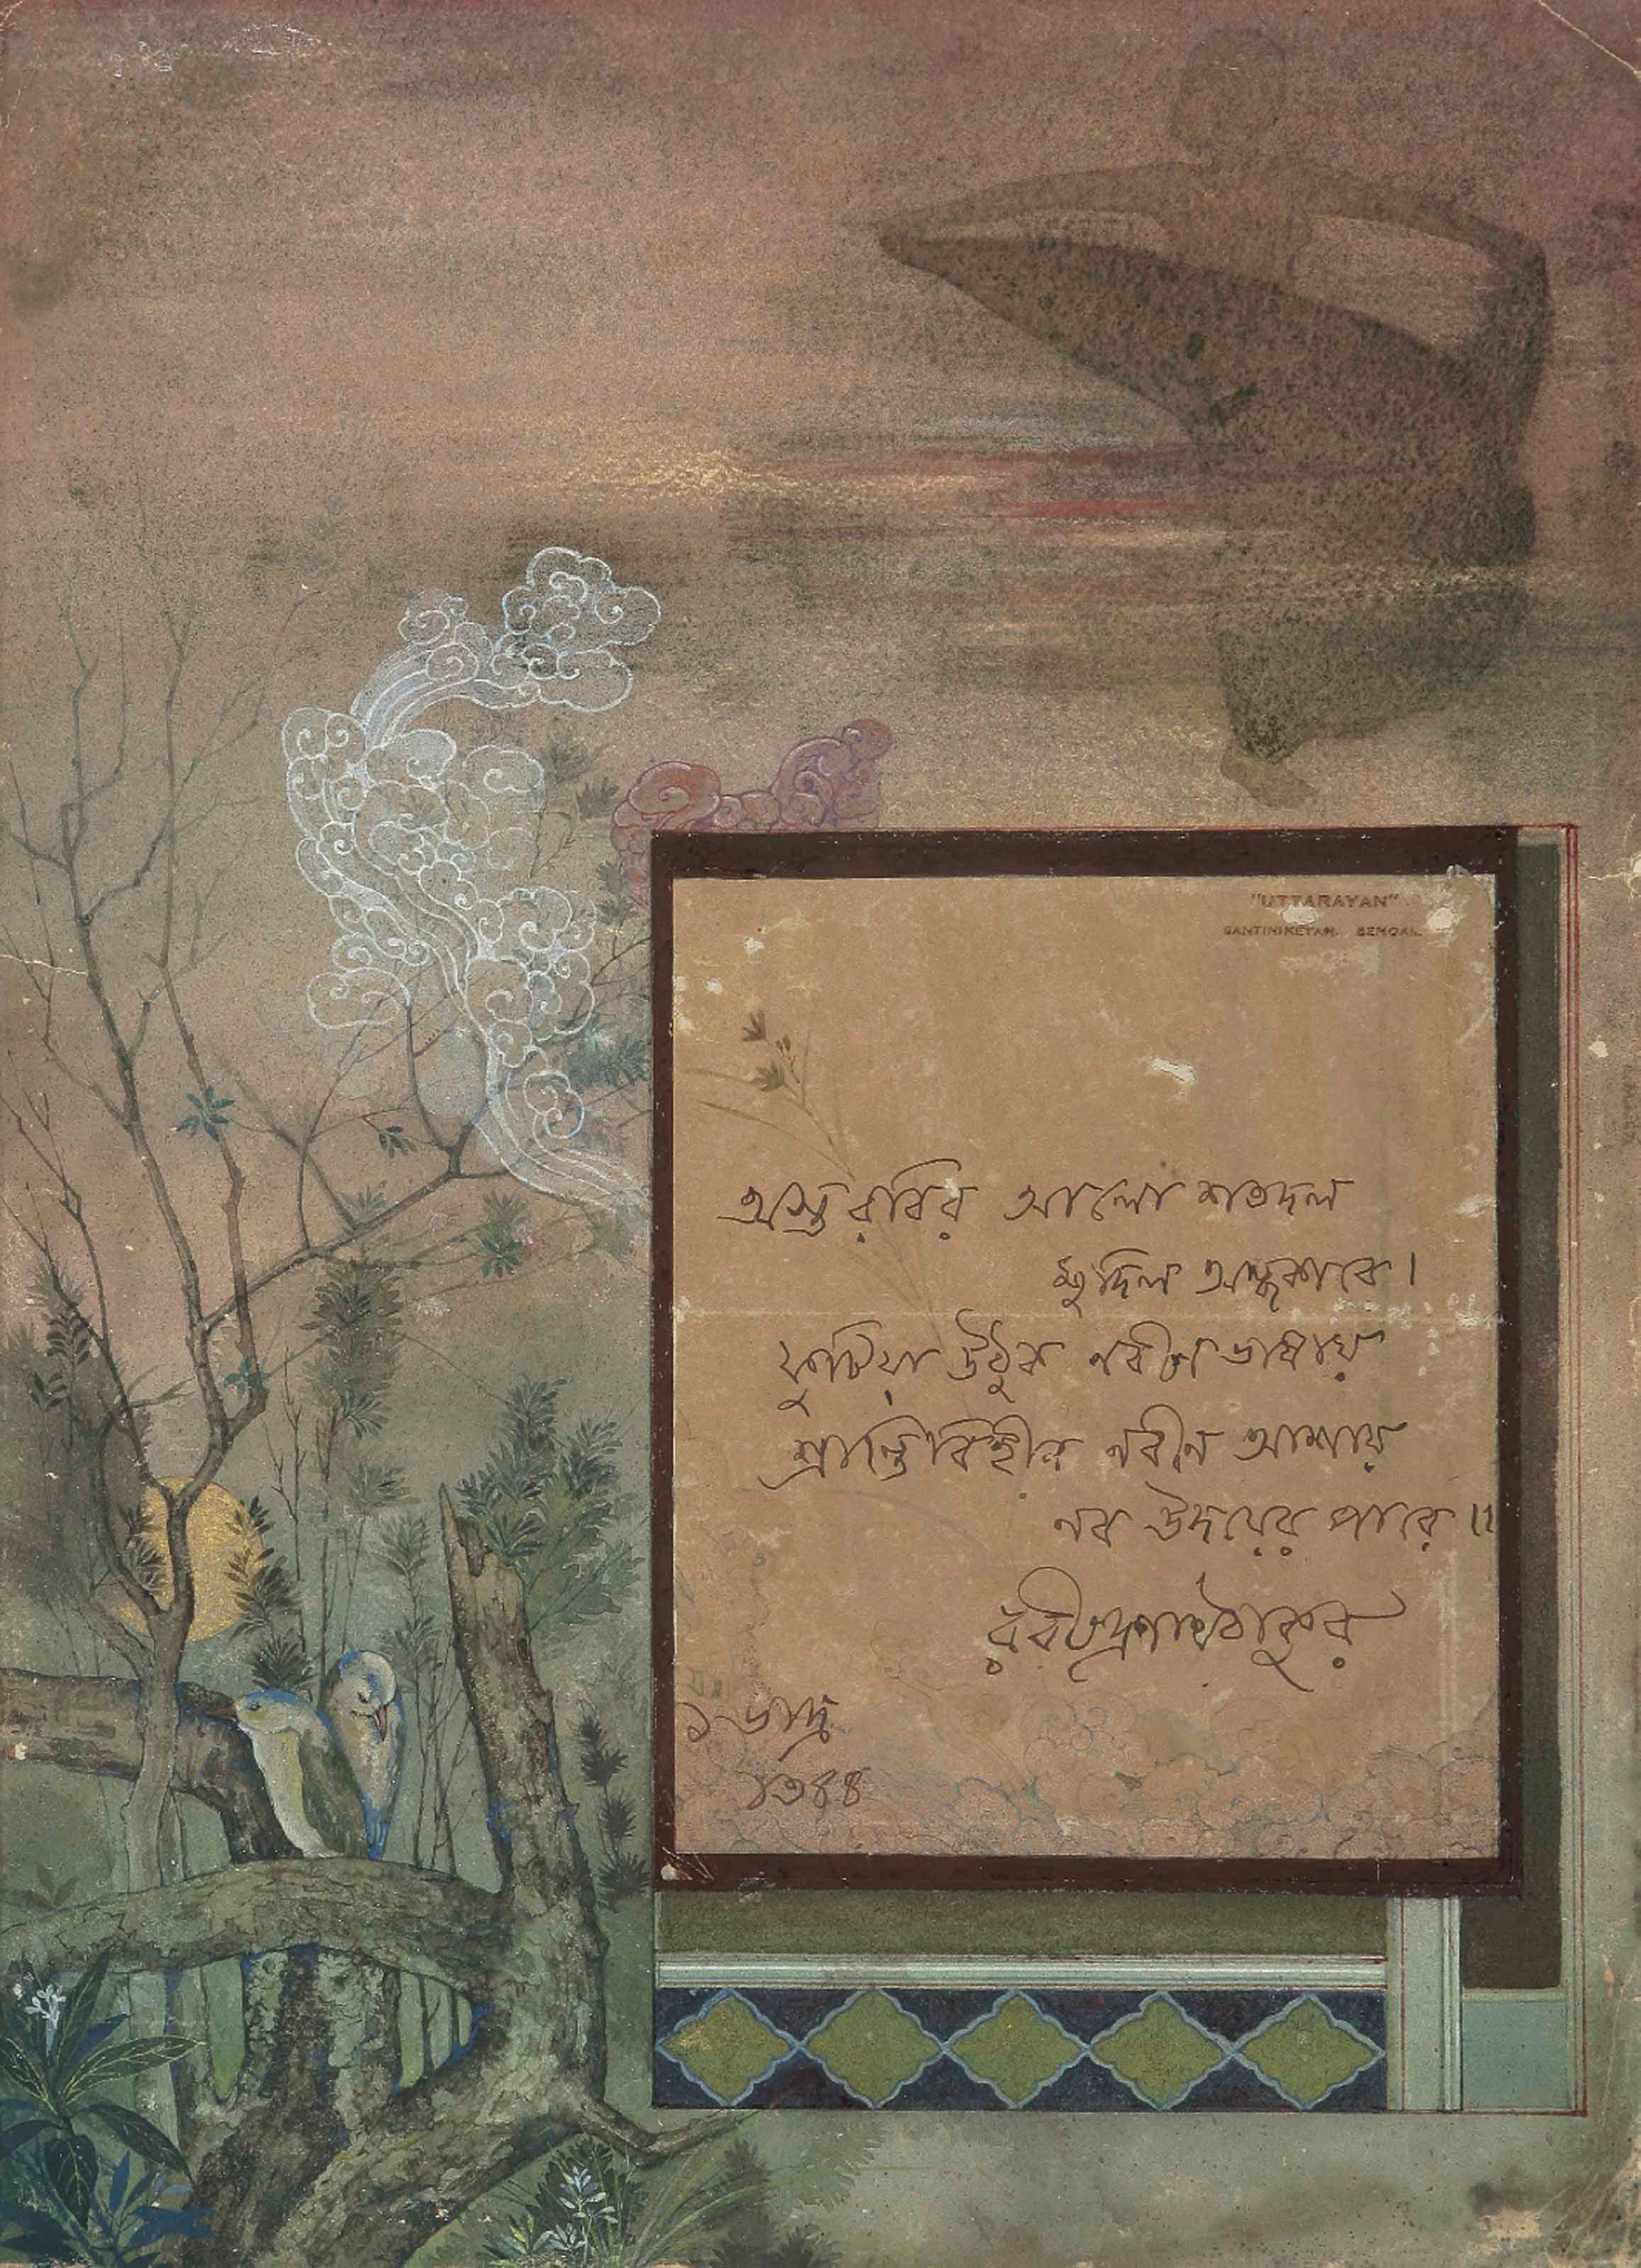 "UTTARAYAN"
SANTINIKETAN. BENGAL.
অস্ত রবির আলো শতদল
মুদিল অন্ধকারে।
ফুটিয়া উঠুক নবীন ভাষায়
শ্রান্তিবিহীন নবীন আশায়
নব উদয়ের পারে॥
রবীন্দ্রনাথ ঠাকুর
১ ভাদ্র
১৩৪৪